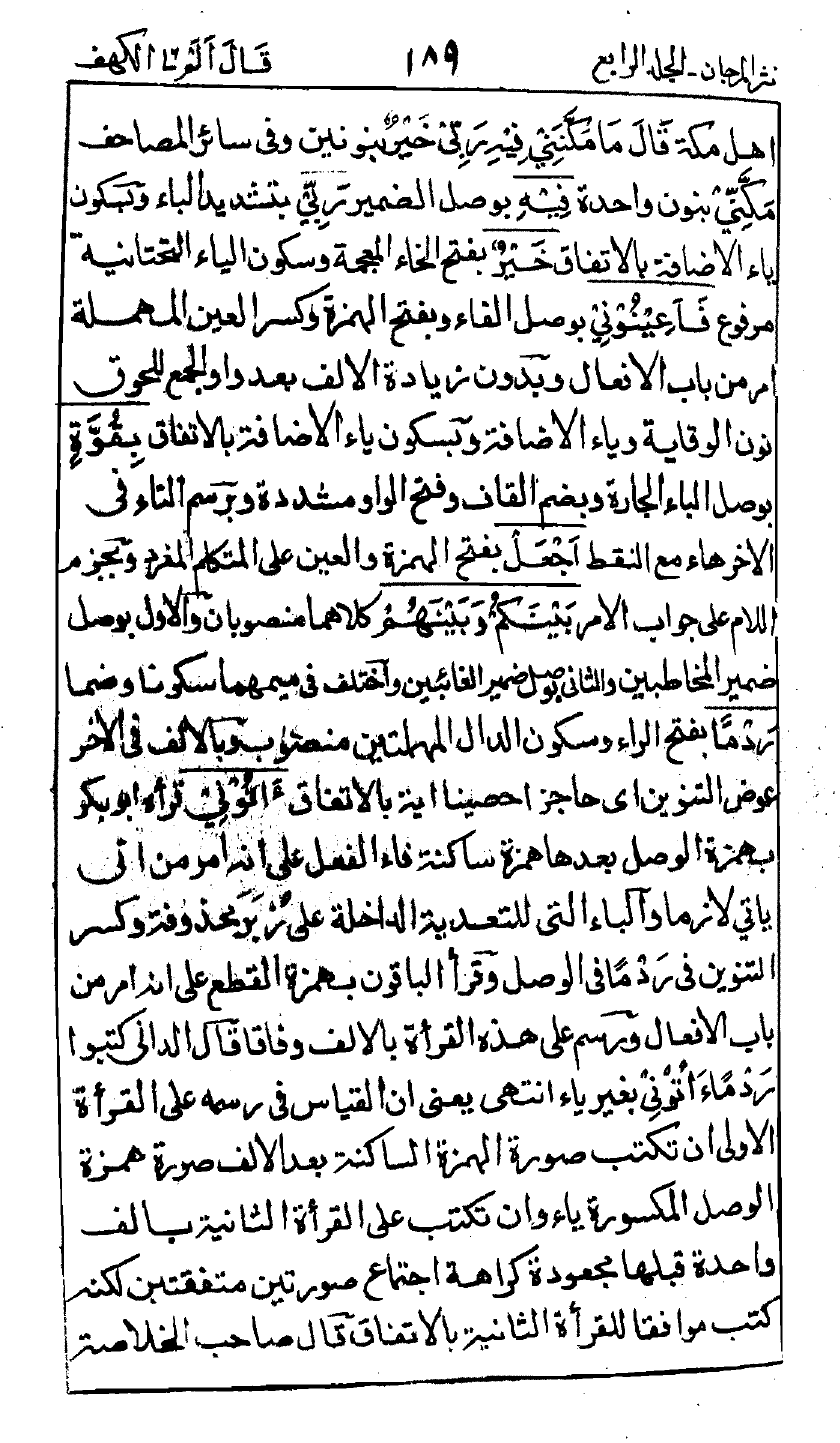 نثر المرجان - المجلد الرابع ١٨٩ قَالَ اَلَمْ ١٦ الكهف
اهل مكة قَالَ مَا مَكَّنَنِيْ فِيْهِ رَبِّيْ خَيْرٌ بنونين وفى سائر المصاحف
مَكَّنِّيْ بنون واحدة فِيْهِ بوصل الضمير رَبِّيْ بتشديد الباء وبسكون
ياء الاضافة بالاتفاق خَيْرٌ بفتح الخاء المعجمة وسكون الياء التحتانية
مرفوع فَاَعِيْنُوْنِيْ بوصل الفاء وبفتح الهمزة وكسر العين المهملة
امر من باب الافعال وبدون زيادة الالف بعد واو الجمع للحوق
نون الوقاية وياء الاضافة وبسكون ياء الاضافة بالاتفاق بِقُوَّةٍ
بوصل الباء الجارة وبضم القاف وفتح الواو مشددة وبرسم التاء فى
الاخر هاء مع النقط اَجْعَلْ بفتح الهمزة والعين على المتكلم المفرد وبجزم
اللام على جواب الامر بَيْنَكُمْ وَبَيْنَهُمْ كلاهما منصوبان والاول بوصل
ضمير المخاطبين والثانى بوصل ضمير الغائبين واختلف فى ميمهما سكونا وضما
رَدْمًا بفتح الراء وسكون الدال المهملتين منصوب وبالالف فى الاخر
عوض التنوين اى حاجز احصينا اية بالاتفاق ءَاتُوْنِيْ قرأه ابو بكر
بهمزة الوصل بعدها همزة ساكنة فاء الفعل على انه امر من اتى
ياتي لازما والباء التى للتعدية الداخلة على زُبَرَ محذوفة وكسر
التنوين فى رَدْمًا فى الوصل وقرأ الباقون بهمزة القطع على انه امر من
باب الافعال ورسم على هذه القرأة بالالف وفاقا قال الدانى كتبوا
رَدْمًا ءَاتُوْنِيْ بغير ياء انتهى يعنى ان القياس فى رسمه على القرأة
الاولى ان تكتب صورة الهمزة الساكنة بعد الالف صورة همزة
الوصل المكسورة ياء وان تكتب على القرأة الثانية بالف
واحدة قبلها مجعودة كراهة اجتماع صورتين متفقتين لكنه
كتب موافقا للقرأة الثانية بالاتفاق قال صاحب الخلاصة